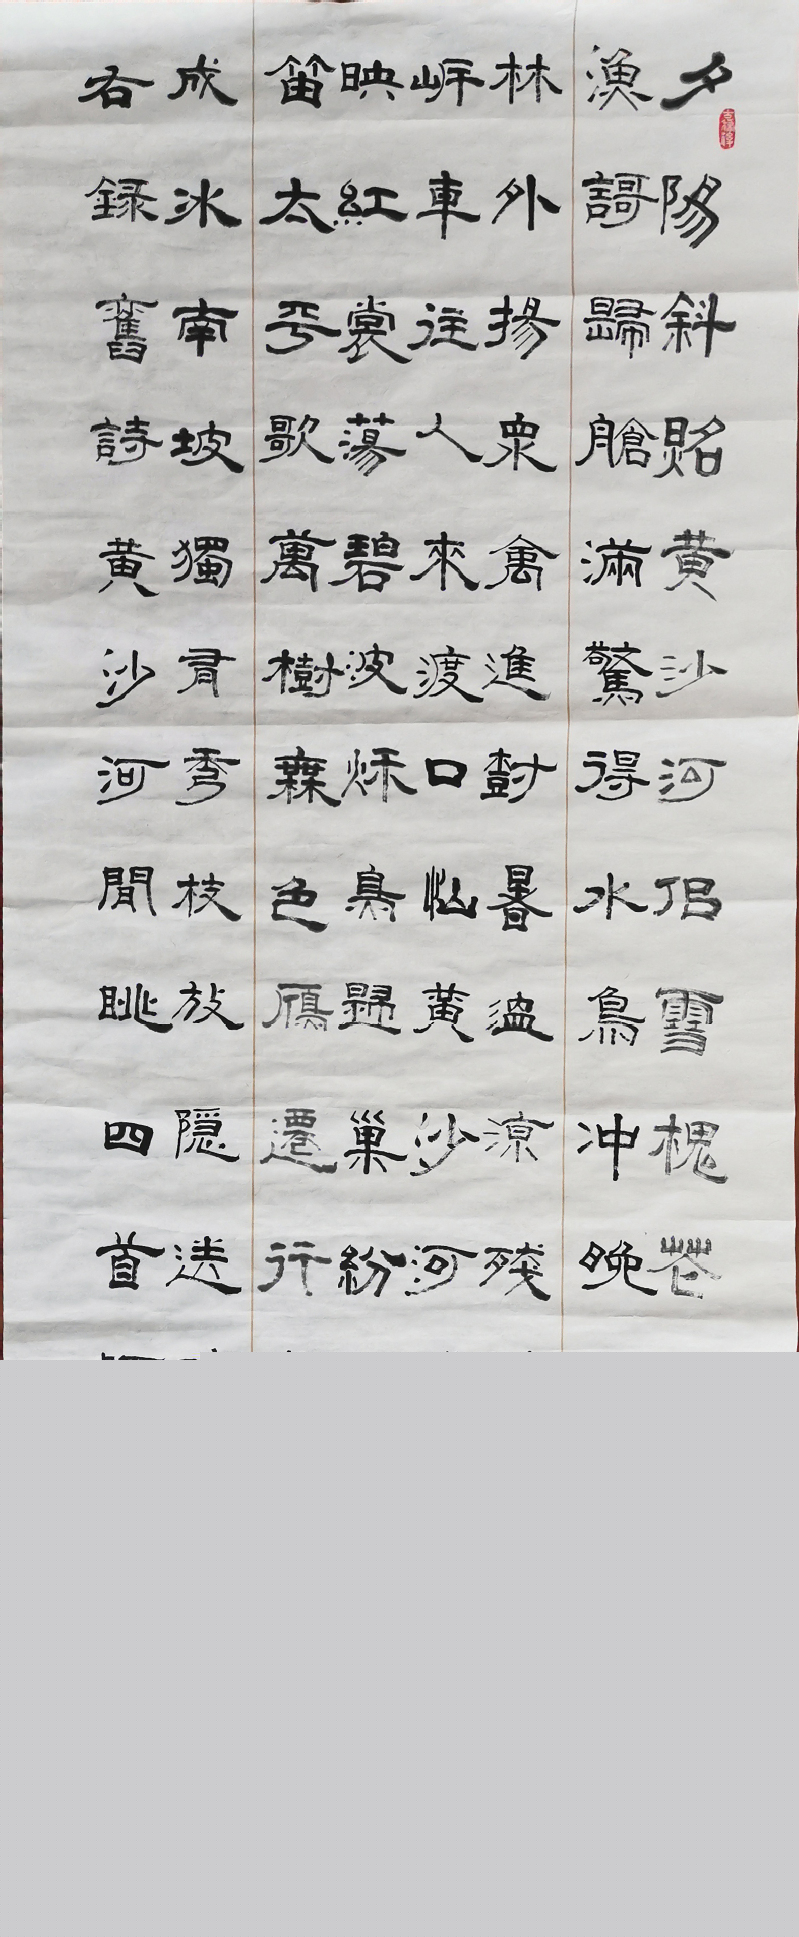 夕陽斜照黄沙河佀雪槐花
漁謌歸艙滿驚得水鳥冲晚
林外揚衆禽進尌暑温凉殘
岸車往人來渡口灿黄沙河
映紅裳蕩碧波秌鳥歸巢紛
笛太平歌萬樹無色鴈遷行
成冰南坡獨有秀枝放隱迷
右録舊詩黄沙河閒眺四首